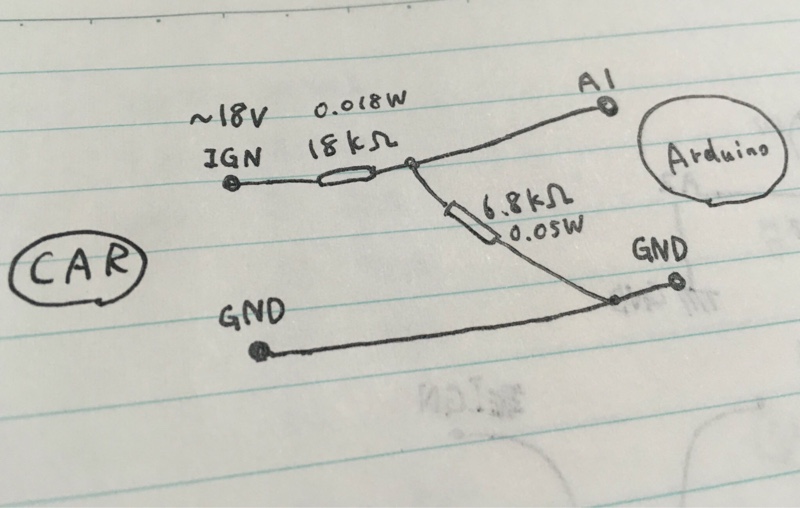 ~18V
0.018W
IGN
18kΩ
A1
Arduino
6.8kΩ
0.05W
GND
CAR
GND